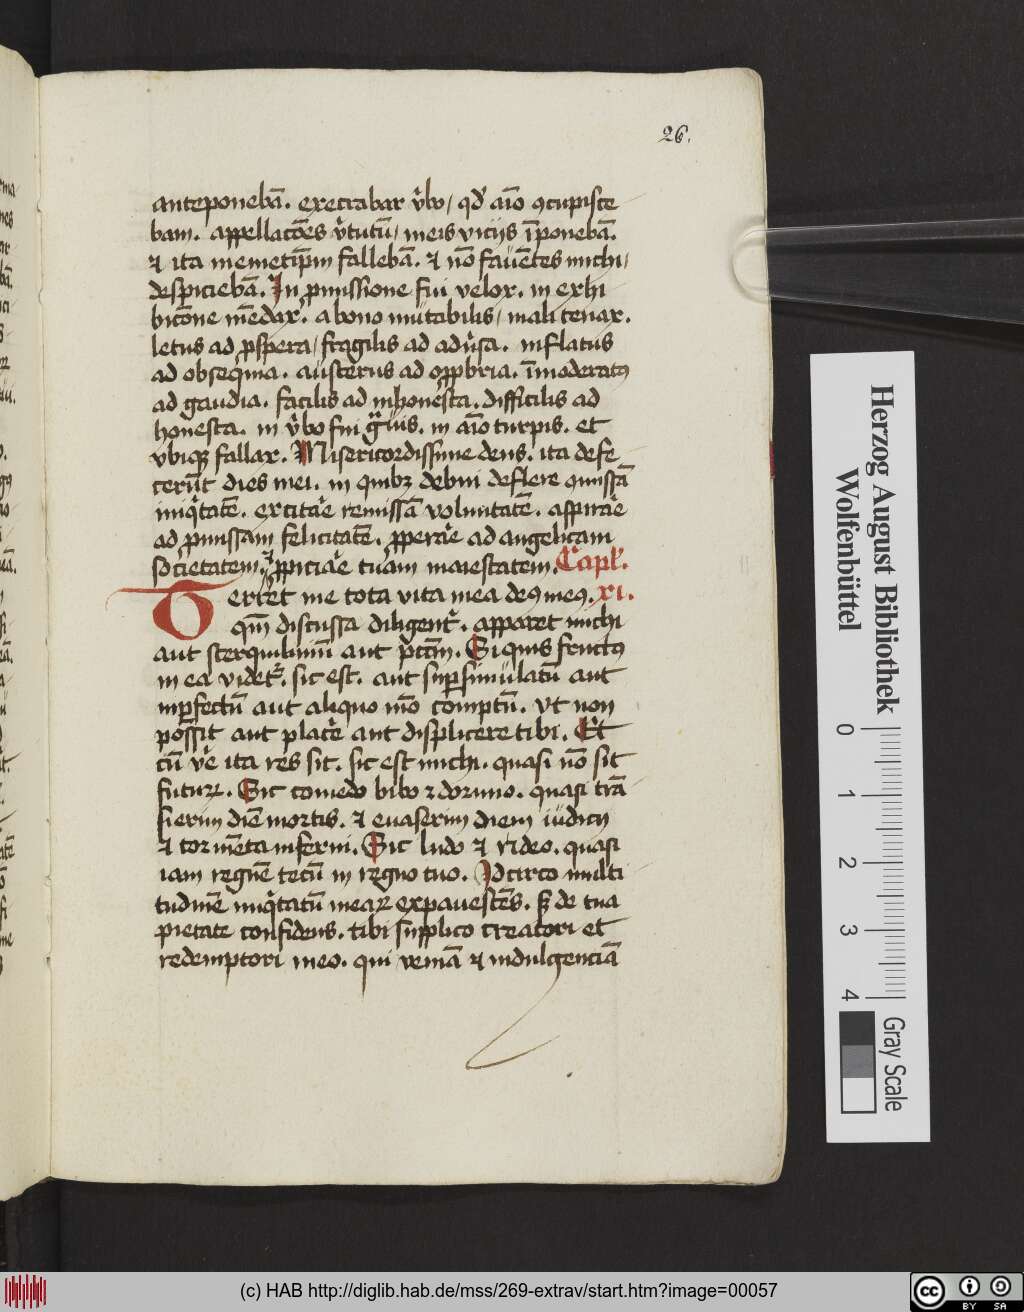 26.
anteponebā. execrabar v̓bo, qd̓ aīo ꝯcupisce
bam. appellacōes v̓tutū, meis vicijs īponebā.
⁊ ita memetip̄m fallebā. ⁊ nō fauētes michi,
despiciebā. In ꝓmissione fui velox. in exhi
bicōne mēdax. a bono mutabilis, mali tenax.
letus ad ꝓspera, fragilis ad adu̓sa. inflatus
ad obsequia. austerus ad opꝓbria. īmoderatꝰ
ad gaudia. facilis ad inhonesta. difficilis ad
honesta. in v̓bo fui g̃uis. in aīo turpis. et
vbiqꝫ fallax. Misericordissime deus. ita defe
cerūt dies mei. in quibꝫ debui deflere cōmissā
iniq̓tatē. excitar̓e remissā voluntatē. aspirar̓e
ad ꝓmissam felicitatē. ꝓperar̓e ad angelicam
societatem, ꝓpiciar̓e tuam maiestatem. Capl̓.
Terret me tota vita mea deꝰ meꝰ. xi.
qm̄ discussa diligent̓. apparet michi
aut sterquilinuū aut pc̄cm̄. Si quis fructꝰ
in ea videt᷑. sic est. aut suꝑsimulatū aut
inꝑfectū aut aliquo mō corruptū. vt non
possit aut placer̓e aut displicere tibi. Et
cū ve̓ ita res sit. sic est michi. quasi nō sit
futurꝝ. Sic comedo bibo ⁊ dormio. quasi t̄nsi
sierim diē mortis. ⁊ euaserim diem iudicij
⁊ tormēta inferni. Sic ludo ⁊ rideo. quasi
iam regnē tecū in regno tuo. Idcirco multi
tudinē iniq̓tatū mearꝝ expauescēs. sꝫ de tua
pietate confidens. tibi supplico creatori et
redemptori meo. qui veniā ⁊ indulgenciā
Herzog August Bibliothek
Wolfenbüttel
0 1 2 3 4
Gray Scale
(c) HAB http://diglib.hab.de/mss/269-extrav/start.htm?image=00057
cc BY SA